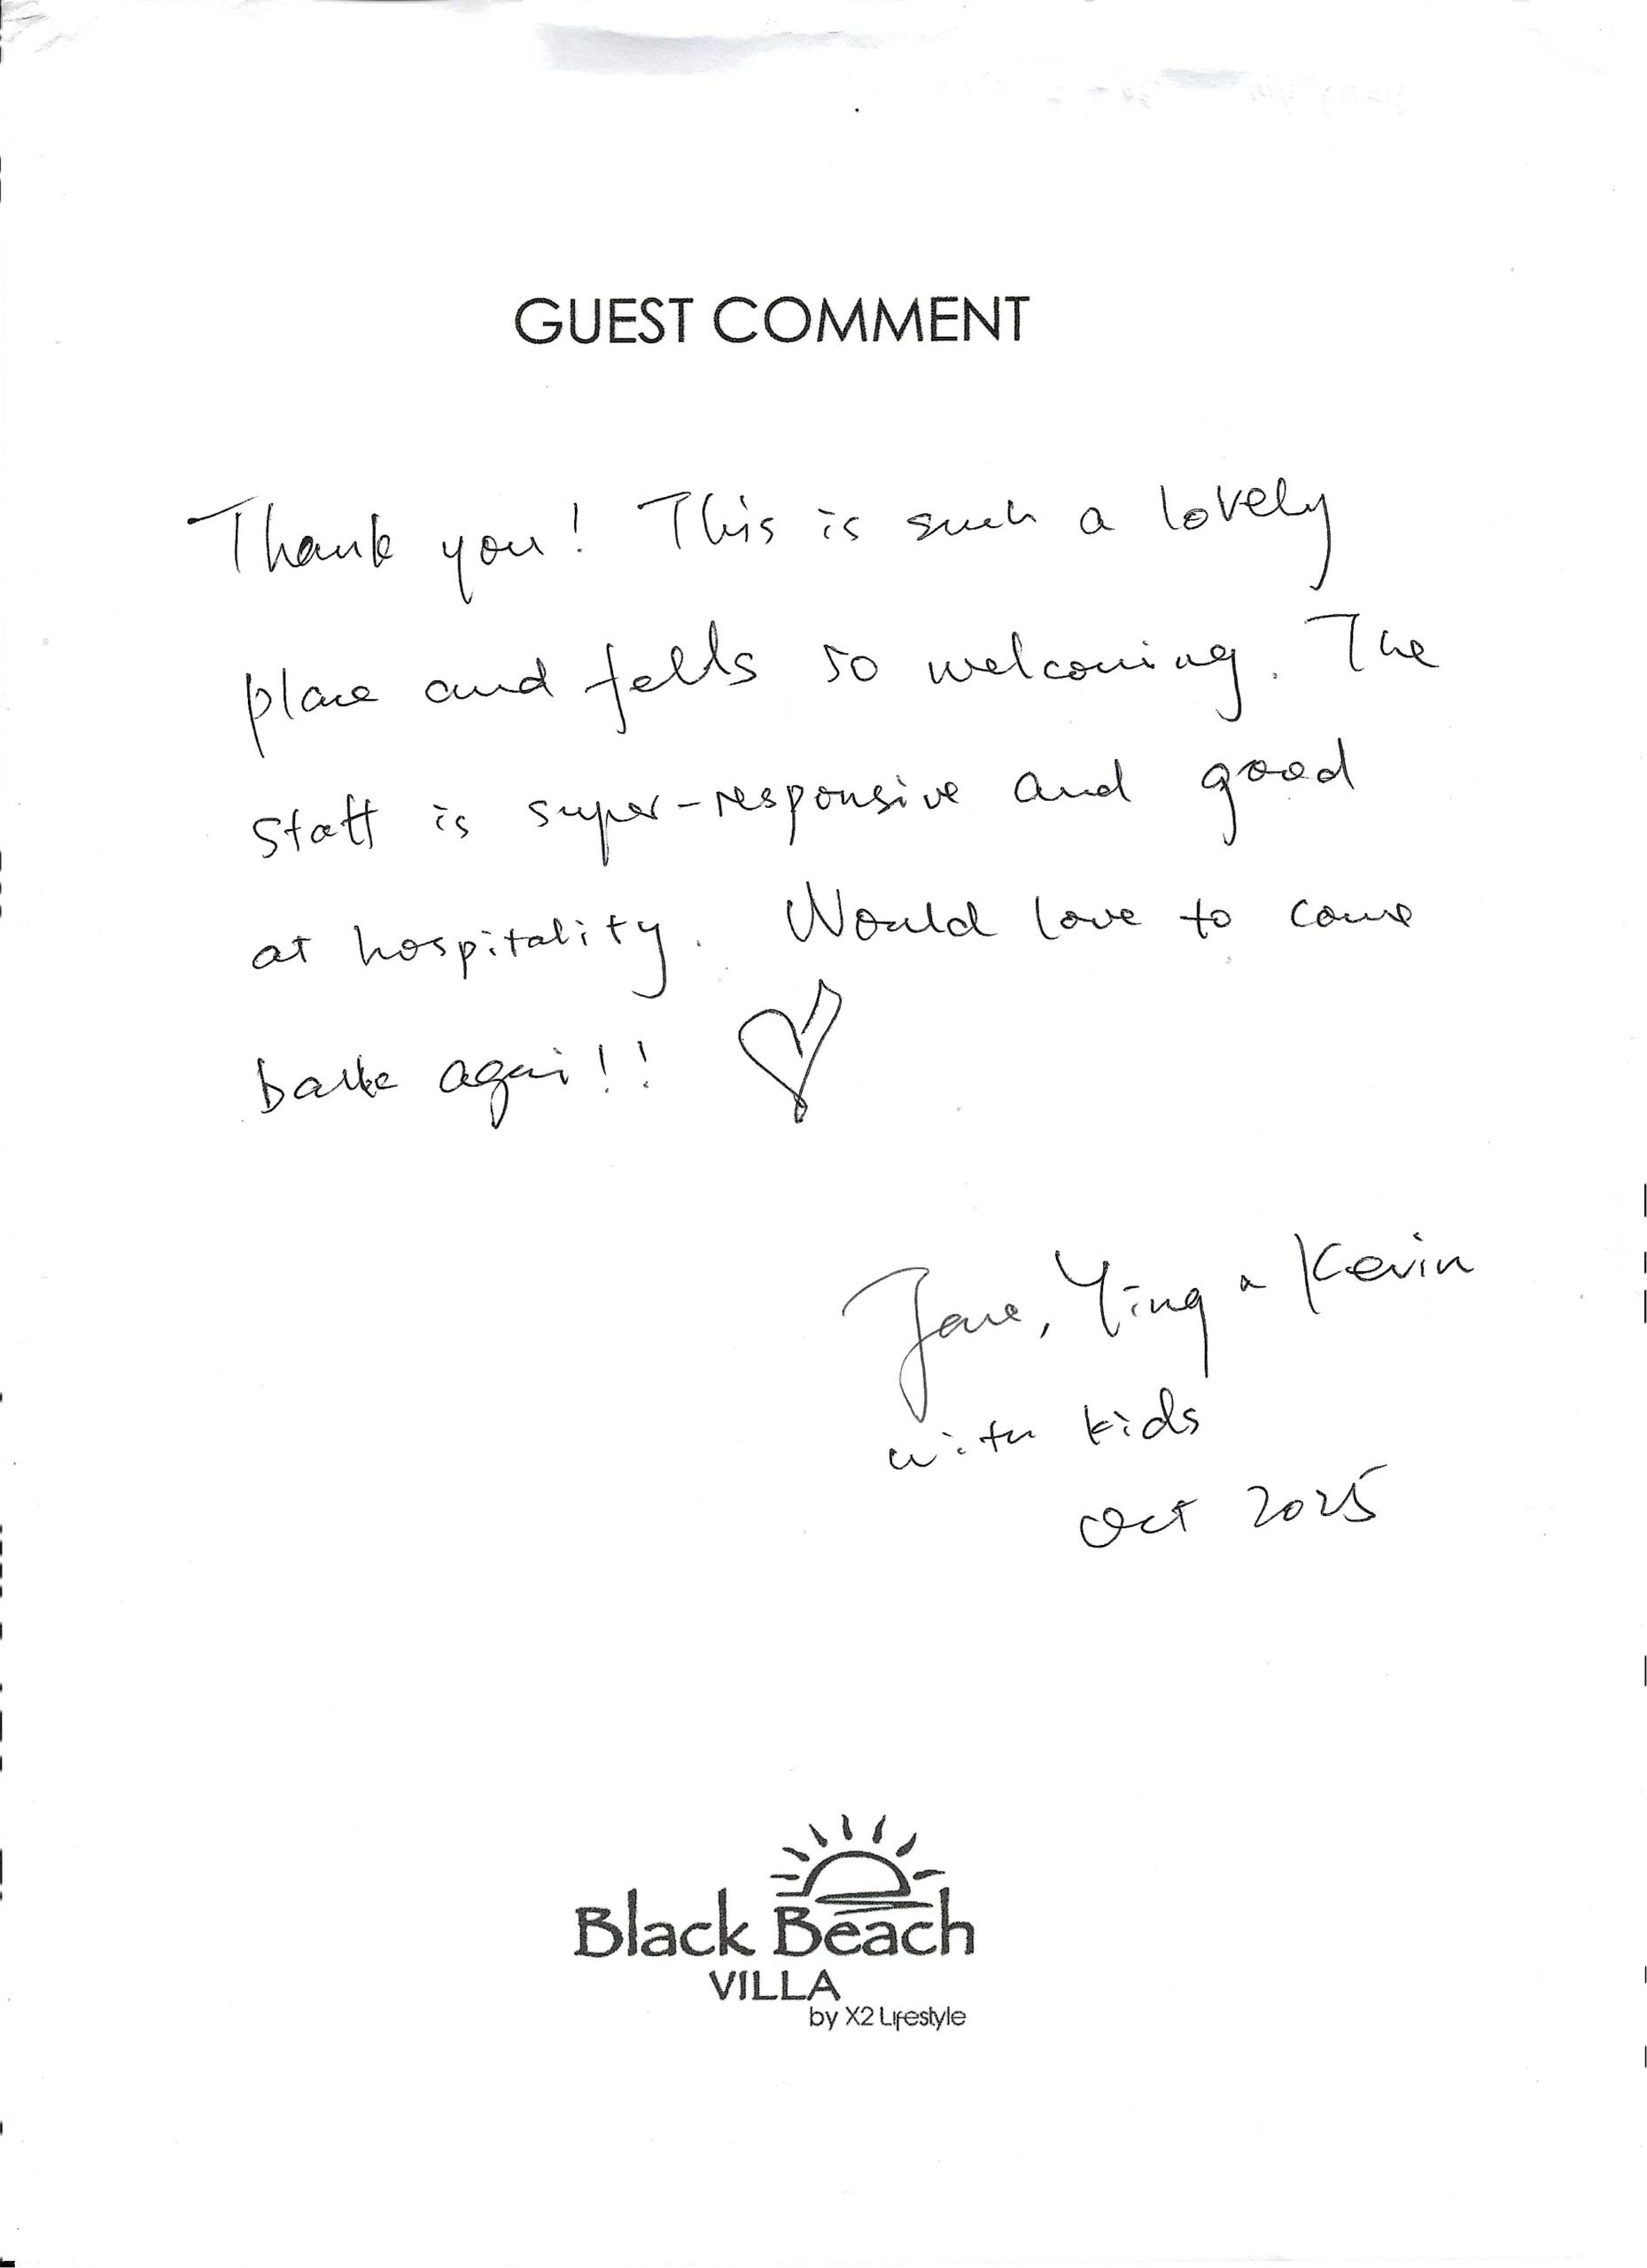 GUEST COMMENT
Thank you! This is such a lovely
place and fells so welcoming. The
staff is super-responsive and good
at hospitality. Would love to come
back agai!!
Jane, Ying & Kevin
with kids
Oct 2025
Black Beach
VILLA
by X2 Lifestyle